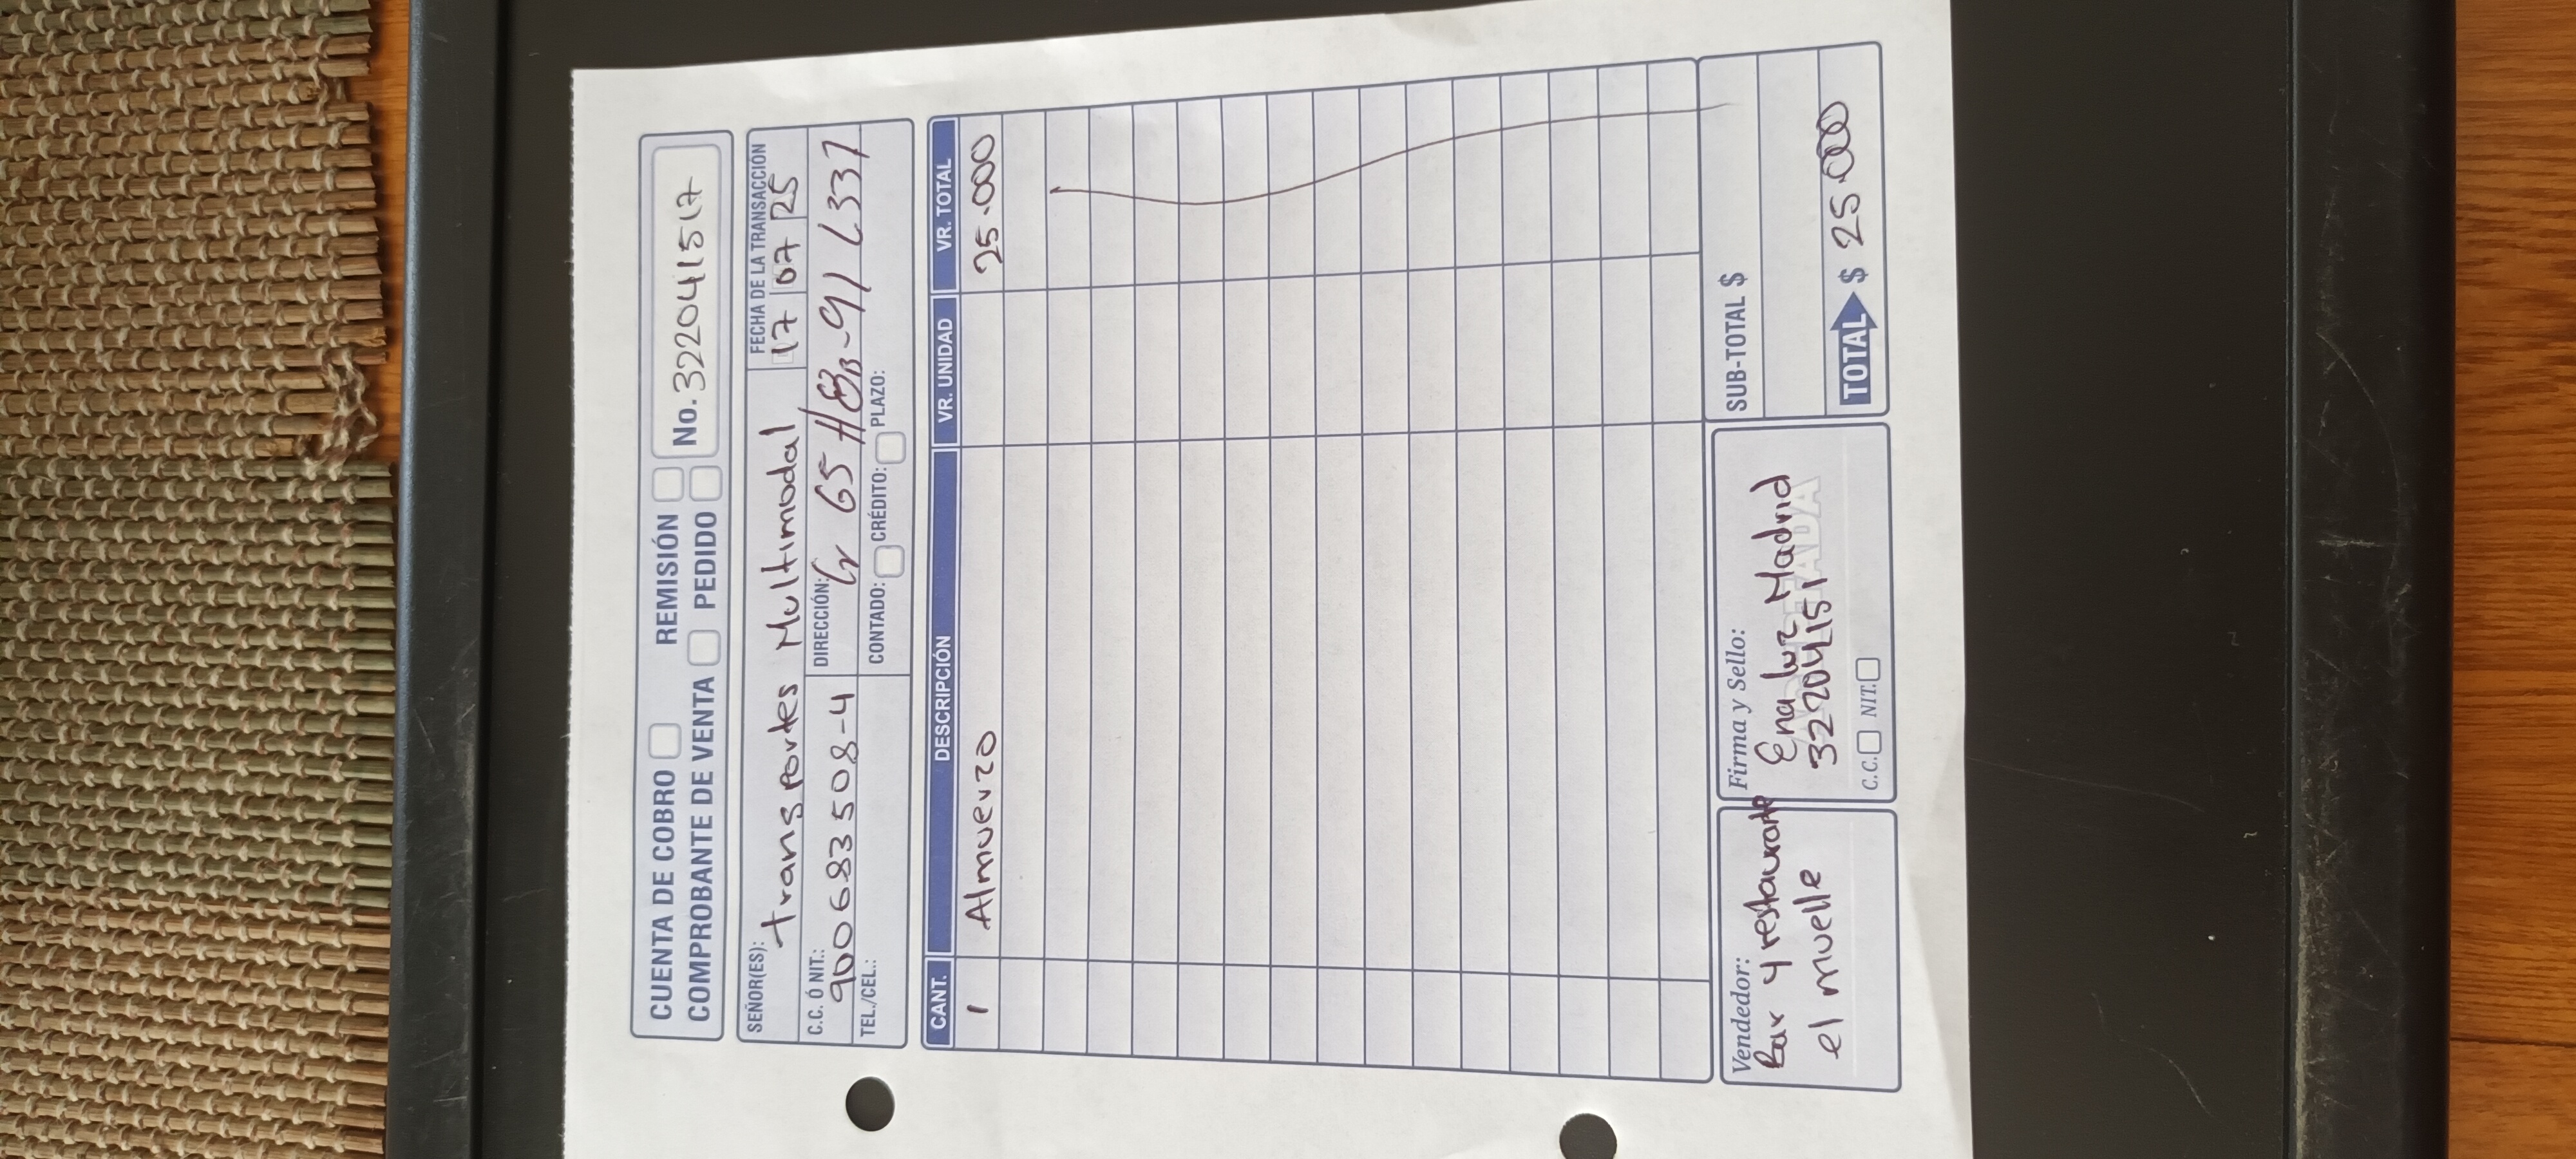 CUENTA DE COBRO REMISIÓN
COMPROBANTE DE VENTA PEDIDO
No. 322041517
SEÑOR(ES): transportes Multimodal
FECHA DE LA TRANSACCIÓN
17 07 25
C.C. Ó NIT.: 900683508-4
DIRECCIÓN: Cr 65 #8B-91 L337
TEL./CEL.:
CONTADO: CRÉDITO: PLAZO:
CANT. DESCRIPCIÓN VR. UNIDAD VR. TOTAL
1 Almuerzo 25.000
Vendedor:
Bar y restaurante
el muelle
Firma y Sello:
Ena luz Madrid
C.C. NIT.
SUB-TOTAL $
TOTAL $ 25.000